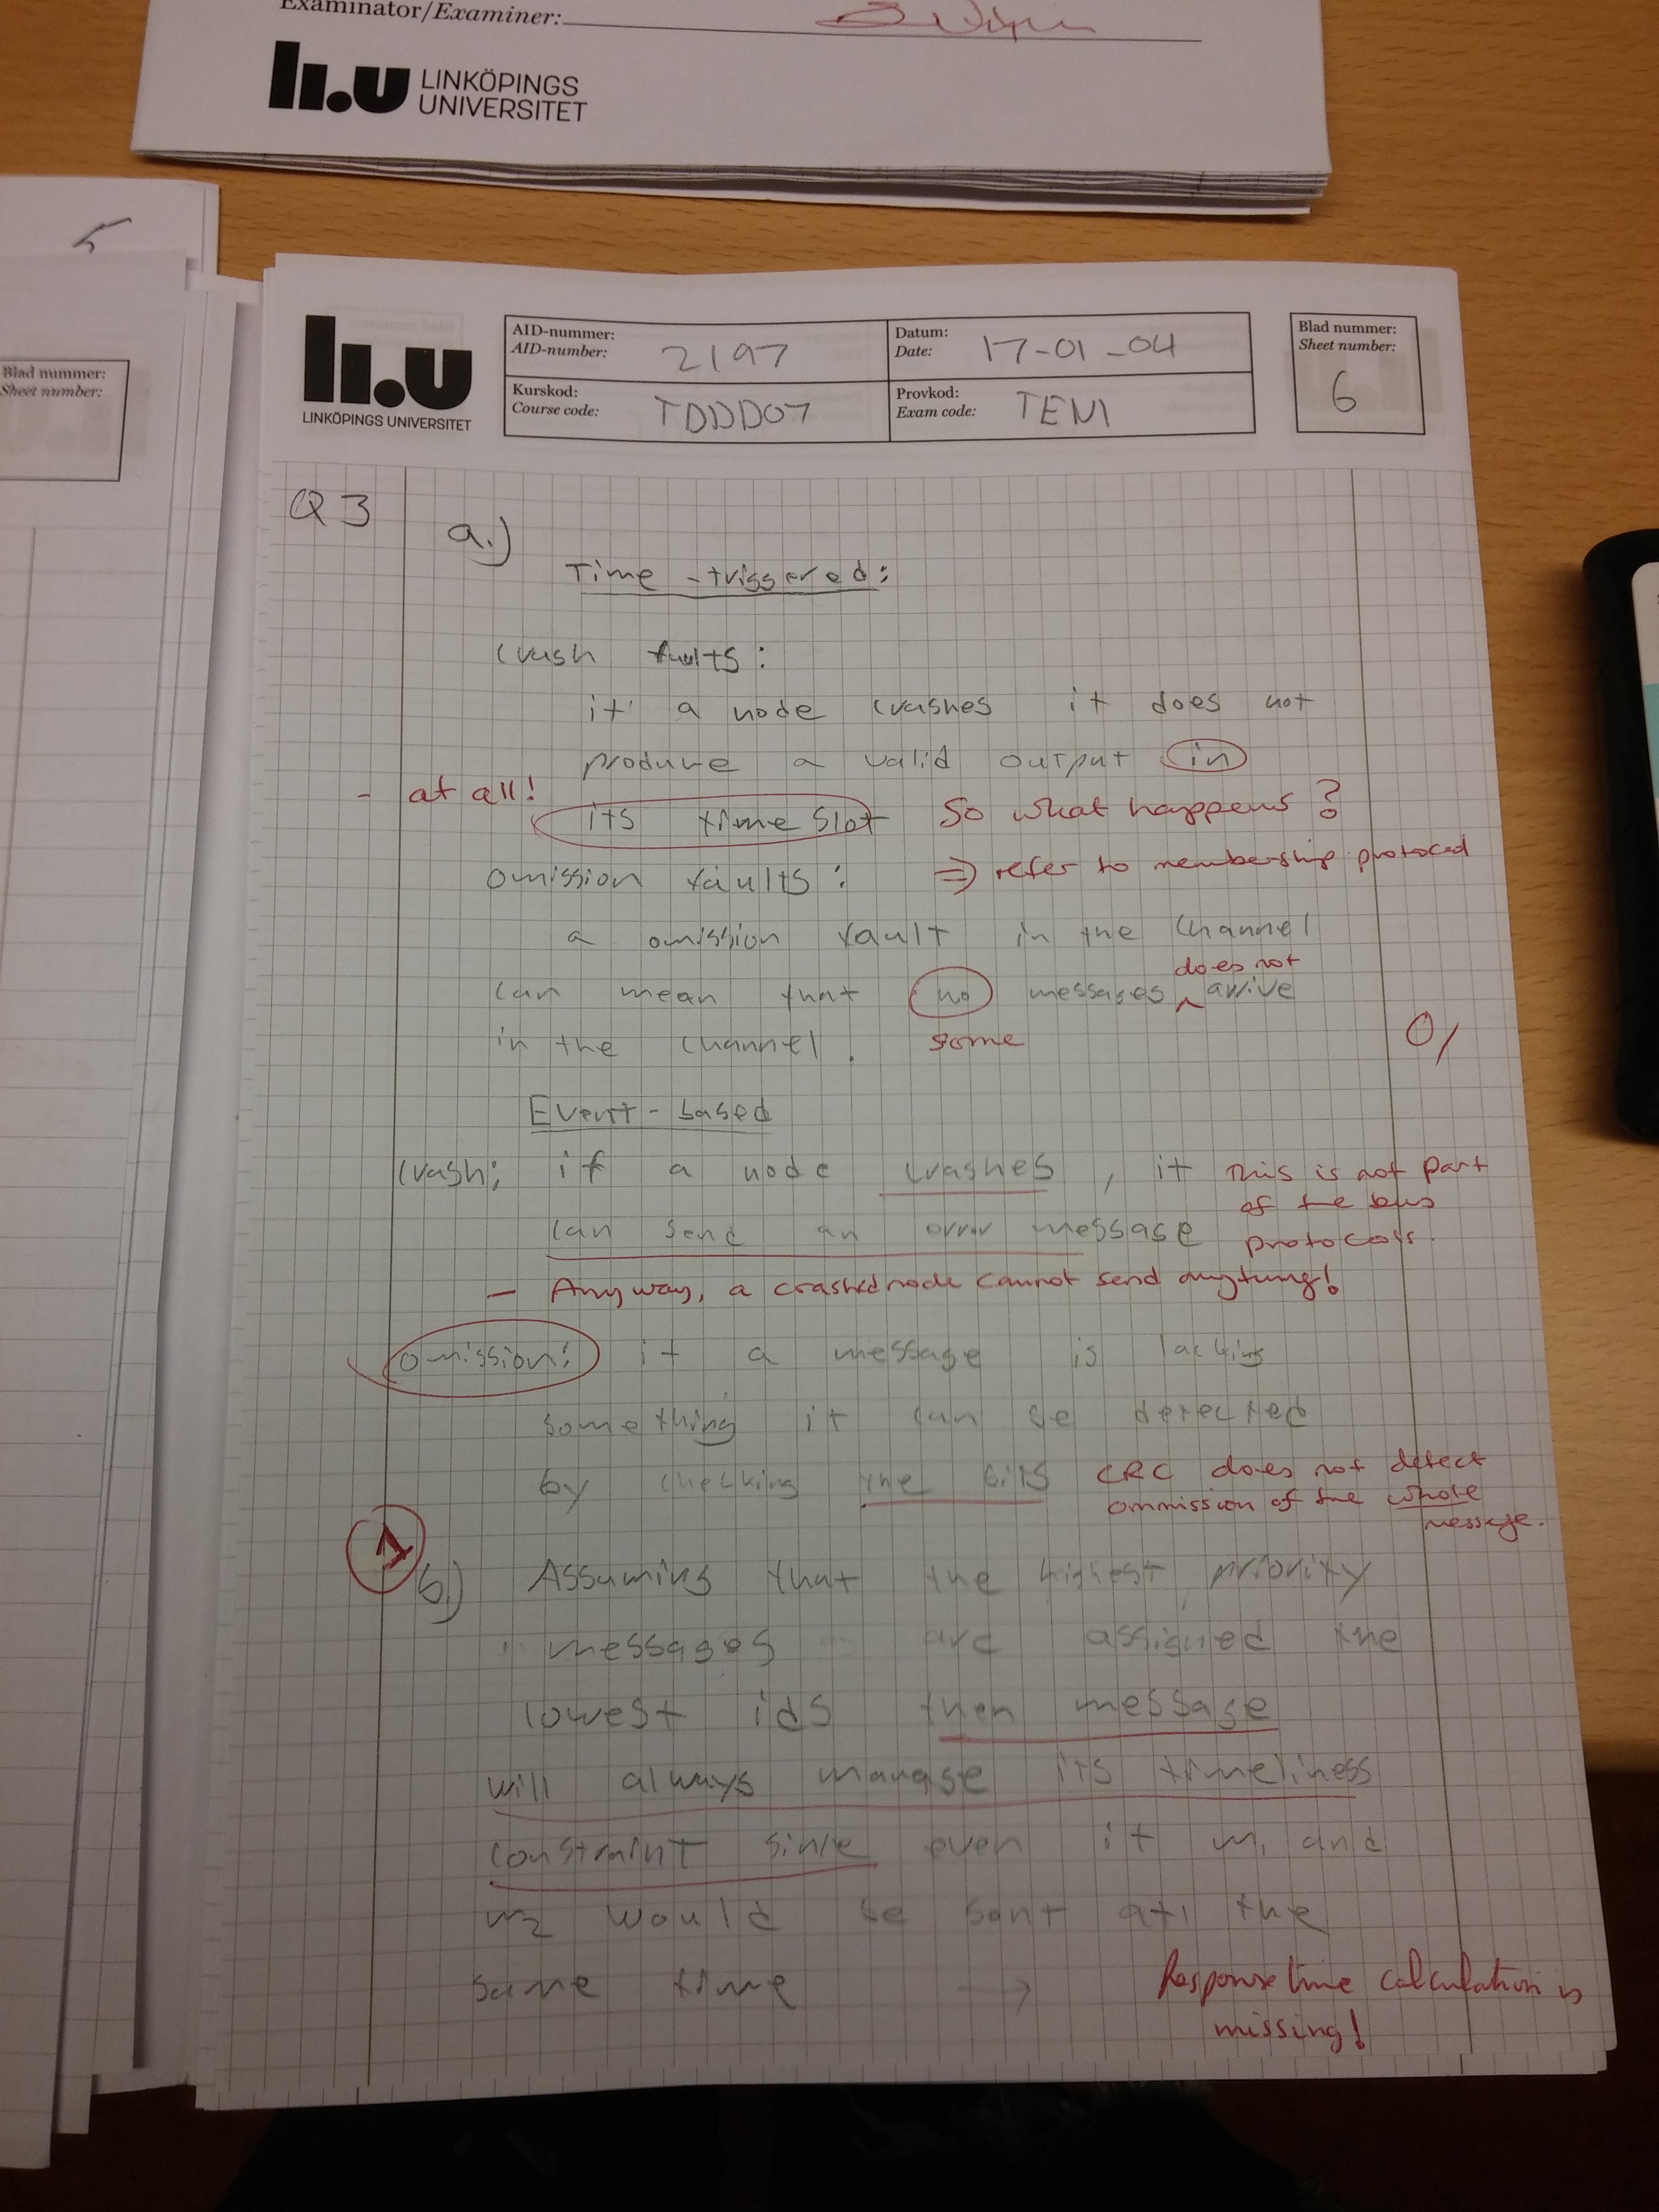 Examinator/Examiner:
LINKÖPINGS
UNIVERSITET
5
Blad nummer:
Sheet number:
LINKÖPINGS UNIVERSITET
AID-nummer:
AID-number: 2197
Datum:
Date: 17-01-04
Kurskod:
Course code: TDDD07
Provkod:
Exam code: TEN1
Blad nummer:
Sheet number:
6
Q3 a.)
Time-triggered:
crash faults:
if a node crashes it does not
produce a valid output in
- at all!
its time slot So what happens?
omission faults: => refer to membership protocol
a omission fault in the channel
does not
can mean that no messages arrive
in the channel. some
0/
Event-based
crash: if a node crashes, it This is not part
of the bus
can send an error message protocols.
- Anyway, a crashed node cannot send anything!
omission: if a message is lacking
something it can be detected
by checking the bits CRC does not detect
ommission of the whole
message.
1
b.) Assuming that the highest priority
messages are assigned the
lowest ids then message
will always manage its timeliness
constraint since even if m1 and
m2 would be sent at the
same time → Response time calculation is
missing!